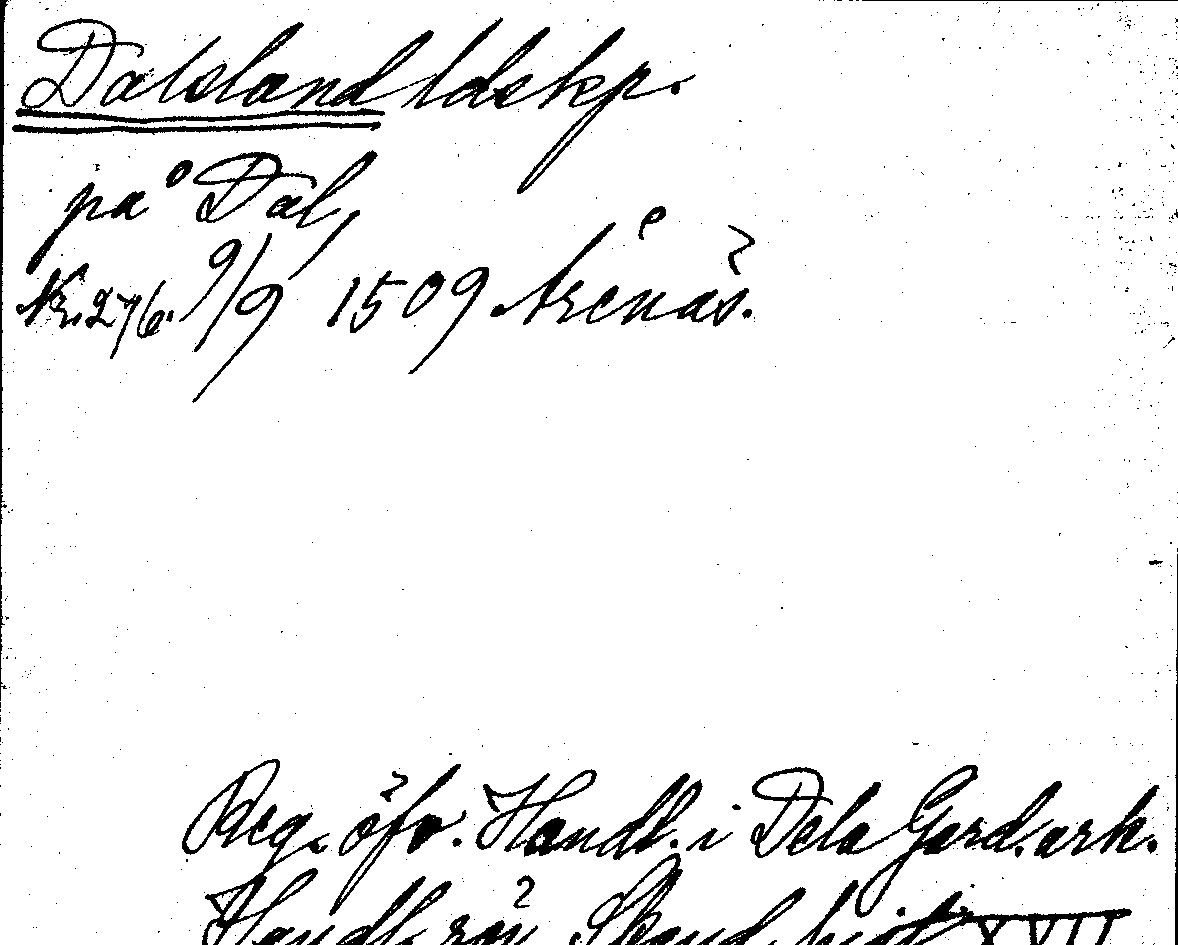 Dalsland ldskp.
på Dal,
Nr. 276. 9/9 1509 Årenäs.
Reg. öfv. Handl. i Dela Gard. ark.
Handl. rör. Skand. hist. XVII